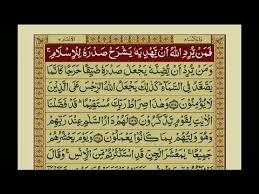 فَمَنْ يُّرِدِ اللّٰهُ اَنْ يَّهْدِيَهٗ يَشْرَحْ صَدْرَهٗ لِلْاِسْلَامِ ۚ
وَمَنْ يُّرِدْ اَنْ يُّضِلَّهٗ يَجْعَلْ صَدْرَهٗ ضَيِّقًا حَرَجًا كَاَنَّمَا
يَصَّعَّدُ فِى السَّمَآءِ ؕ كَذٰلِكَ يَجْعَلُ اللّٰهُ الرِّجْسَ عَلَى الَّذِيْنَ
لَا يُؤْمِنُوْنَ وَهٰذَا صِرَاطُ رَبِّكَ مُسْتَقِيْمًا ؕ قَدْ فَصَّلْنَا
الْاٰيٰتِ لِقَوْمٍ يَّذَّكَّرُوْنَ لَهُمْ دَارُ السَّلٰمِ عِنْدَ رَبِّهِمْ
وَهُوَ وَلِيُّهُمْ بِمَا كَانُوْا يَعْمَلُوْنَ وَيَوْمَ يَحْشُرُهُمْ
جَمِيْعًا ۚ يٰمَعْشَرَ الْجِنِّ قَدِ اسْتَكْثَرْتُمْ مِّنَ الْاِنْسِ ۚ وَقَالَ